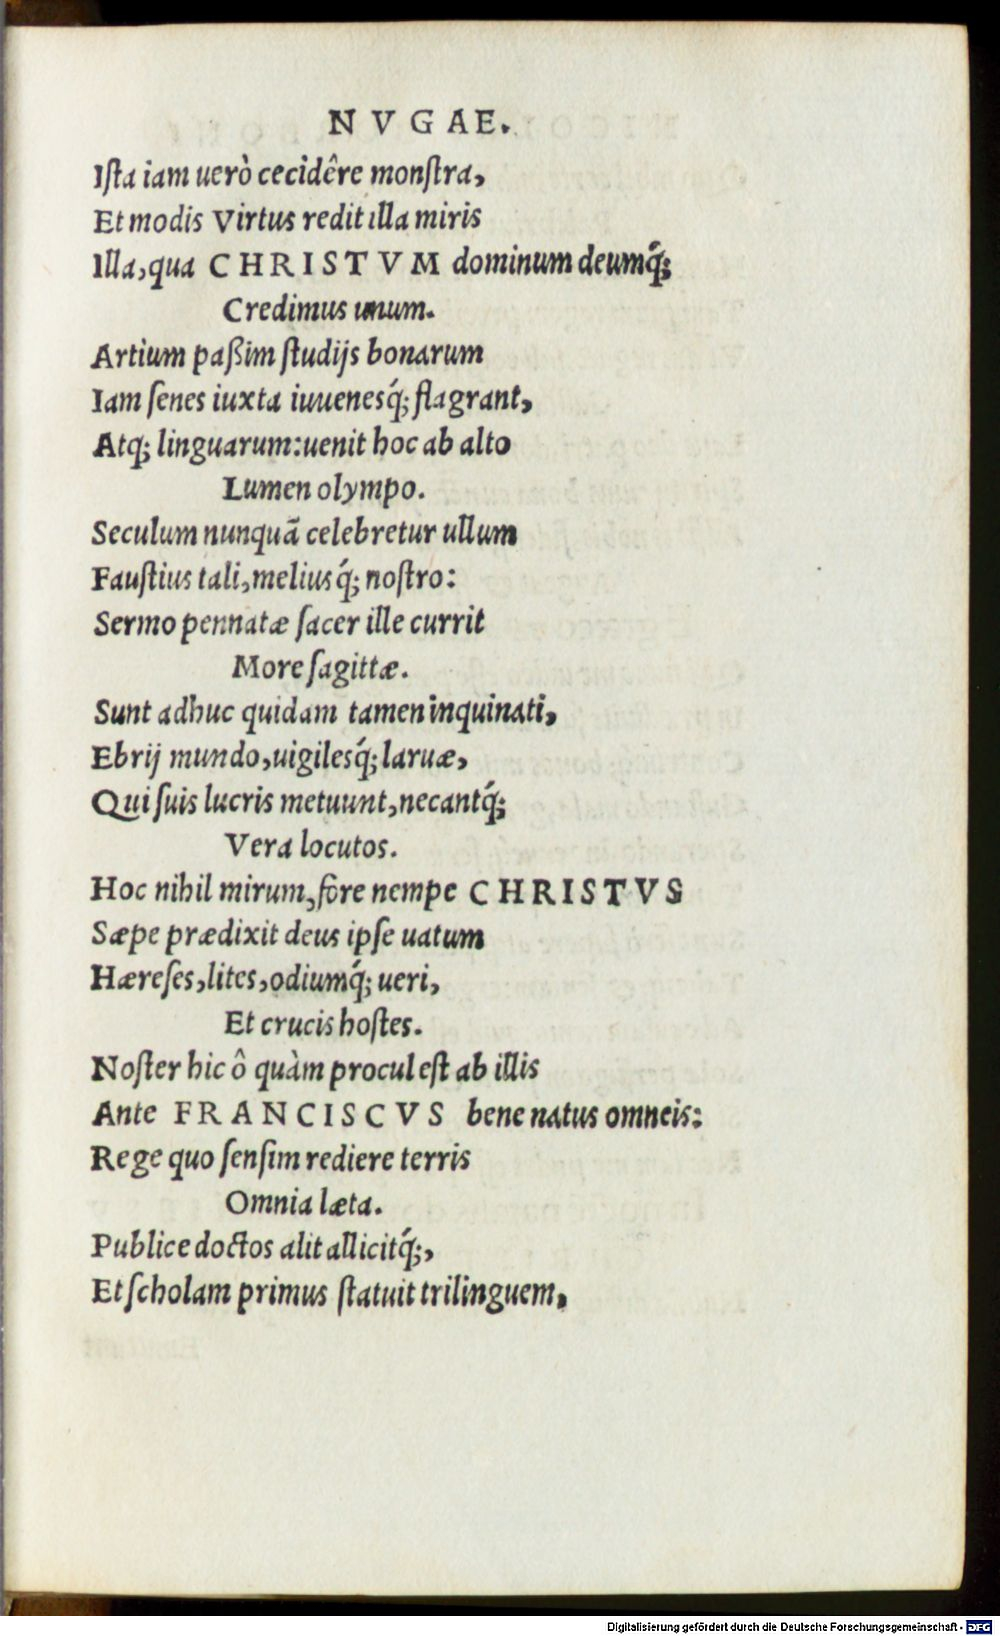 NVGAE.
Ista iam uerò cecidêre monstra,
Et modis Virtus redit illa miris
Illa, qua CHRISTVM dominum deumq́;
Credimus unum.
Artium paßim studijs bonarum
Iam senes iuxta iuuenesq́; flagrant,
Atq; linguarum: uenit hoc ab alto
Lumen olympo.
Seculum nunquā celebretur ullum
Faustius tali, meliusq́; nostro:
Sermo pennatæ sacer ille currit
More sagittæ.
Sunt adhuc quidam tamen inquinati,
Ebrij mundo, uigilesq́; laruæ,
Qui suis lucris metuunt, necantq́;
Vera locutos.
Hoc nihil mirum, fore nempe CHRISTVS
Sæpe prædixit deus ipse uatum
Hæreses, lites, odiumq́; ueri,
Et crucis hostes.
Noster hic ô quàm procul est ab illis
Ante FRANCISCVS bene natus omneis:
Rege quo sensim rediere terris
Omnia læta.
Publice doctos alit allicitq́;,
Et scholam primus statuit trilinguem,
Digitalisierung gefördert durch die Deutsche Forschungsgemeinschaft - DFG